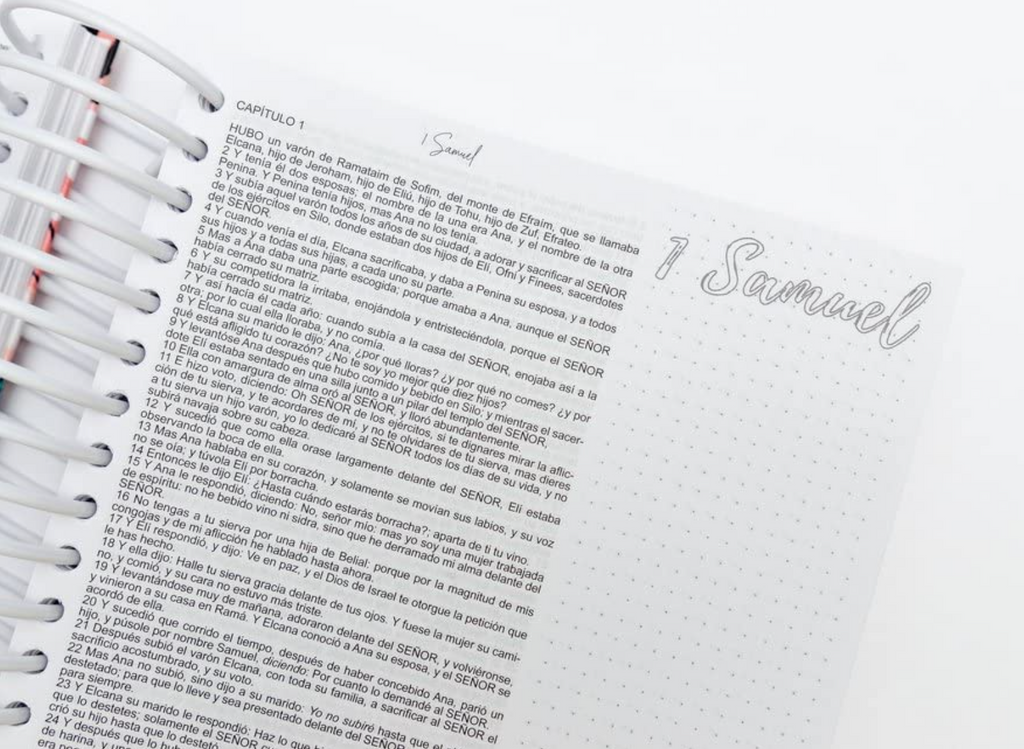 CAPÍTULO 1
1 Samuel
HUBO un varón de Ramataim de Sofim, del monte de Efraim, que se llamaba
Elcana, hijo de Jeroham, hijo de Eliú, hijo de Tohu, hijo de Zuf, Efrateo.
2 Y tenía él dos esposas; el nombre de la una era Ana, y el nombre de la otra
Penina. Y Penina tenía hijos, mas Ana no los tenía.
3 Y subía aquel varón todos los años de su ciudad, a adorar y sacrificar al SEÑOR
de los ejércitos en Silo, donde estaban dos hijos de Elí, Ofni y Finees, sacerdotes
del SEÑOR.
4 Y cuando venía el día, Elcana sacrificaba, y daba a Penina su esposa, y a todos
sus hijos y a todas sus hijas, a cada uno su parte.
5 Mas a Ana daba una parte escogida; porque amaba a Ana, aunque el SEÑOR
había cerrado su matriz.
6 Y su competidora la irritaba, enojándola y entristeciéndola, porque el SEÑOR
había cerrado su matriz.
7 Y así hacía él cada año: cuando subía a la casa del SEÑOR, enojaba así a la
otra; por lo cual ella lloraba, y no comía.
8 Y Elcana su marido le dijo: Ana, ¿por qué lloras? ¿y por qué no comes? ¿y por
qué está afligido tu corazón? ¿No te soy yo mejor que diez hijos?
9 Y levantóse Ana después que hubo comido y bebido en Silo; y mientras el sacer-
dote Elí estaba sentado en una silla junto a un pilar del templo del SEÑOR,
10 Ella con amargura de alma oró al SEÑOR, y lloró abundantemente.
11 E hizo voto, diciendo: Oh SEÑOR de los ejércitos, si te dignares mirar la aflic-
ción de tu sierva, y te acordares de mí, y no te olvidares de tu sierva, mas dieres
a tu sierva un hijo varón, yo lo dedicaré al SEÑOR todos los días de su vida, y no
subirá navaja sobre su cabeza.
12 Y sucedió que como ella orase largamente delante del SEÑOR, Elí estaba
observando la boca de ella.
13 Mas Ana hablaba en su corazón, y solamente se movían sus labios, y su voz
no se oía; y túvola Elí por borracha.
14 Entonces le dijo Elí: ¿Hasta cuándo estarás borracha?; aparta de ti tu vino.
15 Y Ana le respondió, diciendo: No, señor mío: mas yo soy una mujer trabajada
de espíritu: no he bebido vino ni sidra, sino que he derramado mi alma delante del
SEÑOR.
16 No tengas a tu sierva por una hija de Belial; porque por la magnitud de mis
congojas y de mi aflicción he hablado hasta ahora.
17 Y Elí respondió, y dijo: Ve en paz, y el Dios de Israel te otorgue la petición que
le has hecho.
18 Y ella dijo: Halle tu sierva gracia delante de tus ojos. Y fuese la mujer su cami-
no, y comió, y su cara no estuvo más triste.
19 Y levantándose muy de mañana, adoraron delante del SEÑOR, y volviéronse,
y vinieron a su casa en Ramá. Y Elcana conoció a Ana su esposa, y el SEÑOR se
acordó de ella.
20 Y sucedió que corrido el tiempo, después de haber concebido Ana, parió un
hijo, y púsole por nombre Samuel, diciendo: Por cuanto lo demandé al SEÑOR.
21 Después subió el varón Elcana, con toda su familia, a sacrificar al SEÑOR el
sacrificio acostumbrado, y su voto.
22 Mas Ana no subió, sino dijo a su marido: Yo no subiré hasta que el
destetado; para que lo lleve y sea presentado delante del SEÑOR
para siempre.
23 Y Elcana su marido le respondió: Haz lo que
que lo destetes; solamente el SEÑOR
crió su hijo hasta que lo destetó.
24 Y después que lo
de harina, y
1 Samuel